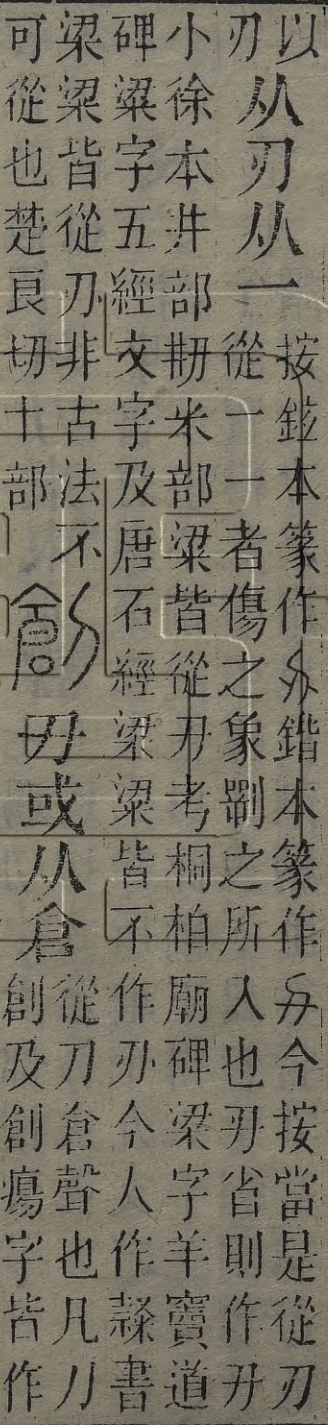 以
刃从刃从一
按鉉本篆作刅鍇本篆作办今按當是從刃
從一一者傷之象劉之所入也刅省則作刃
小徐本井部㓝米部梁皆從刅考桐柏廟碑梁字羊竇道
碑粱字五經文字及唐石經梁粱皆不作刅今人作䅿書
梁粱皆從刅非古法不
可從也楚良切十部
創刅或从倉
從刀倉聲也凡刀
創及創瘍字皆作